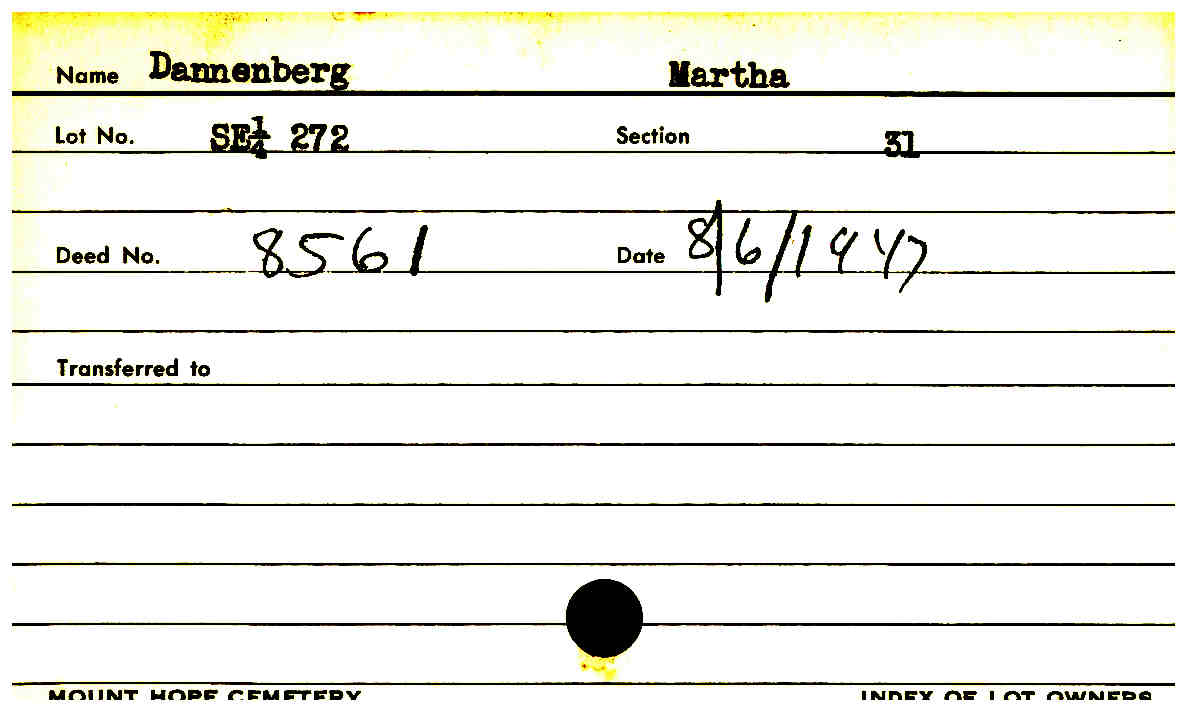 Name Dannenberg Martha
Lot No. SE¼ 272 Section 31
Deed No. 8561 Date 8/6/1947
Transferred to
MOUNT HOPE CEMETERY INDEX OF LOT OWNERS